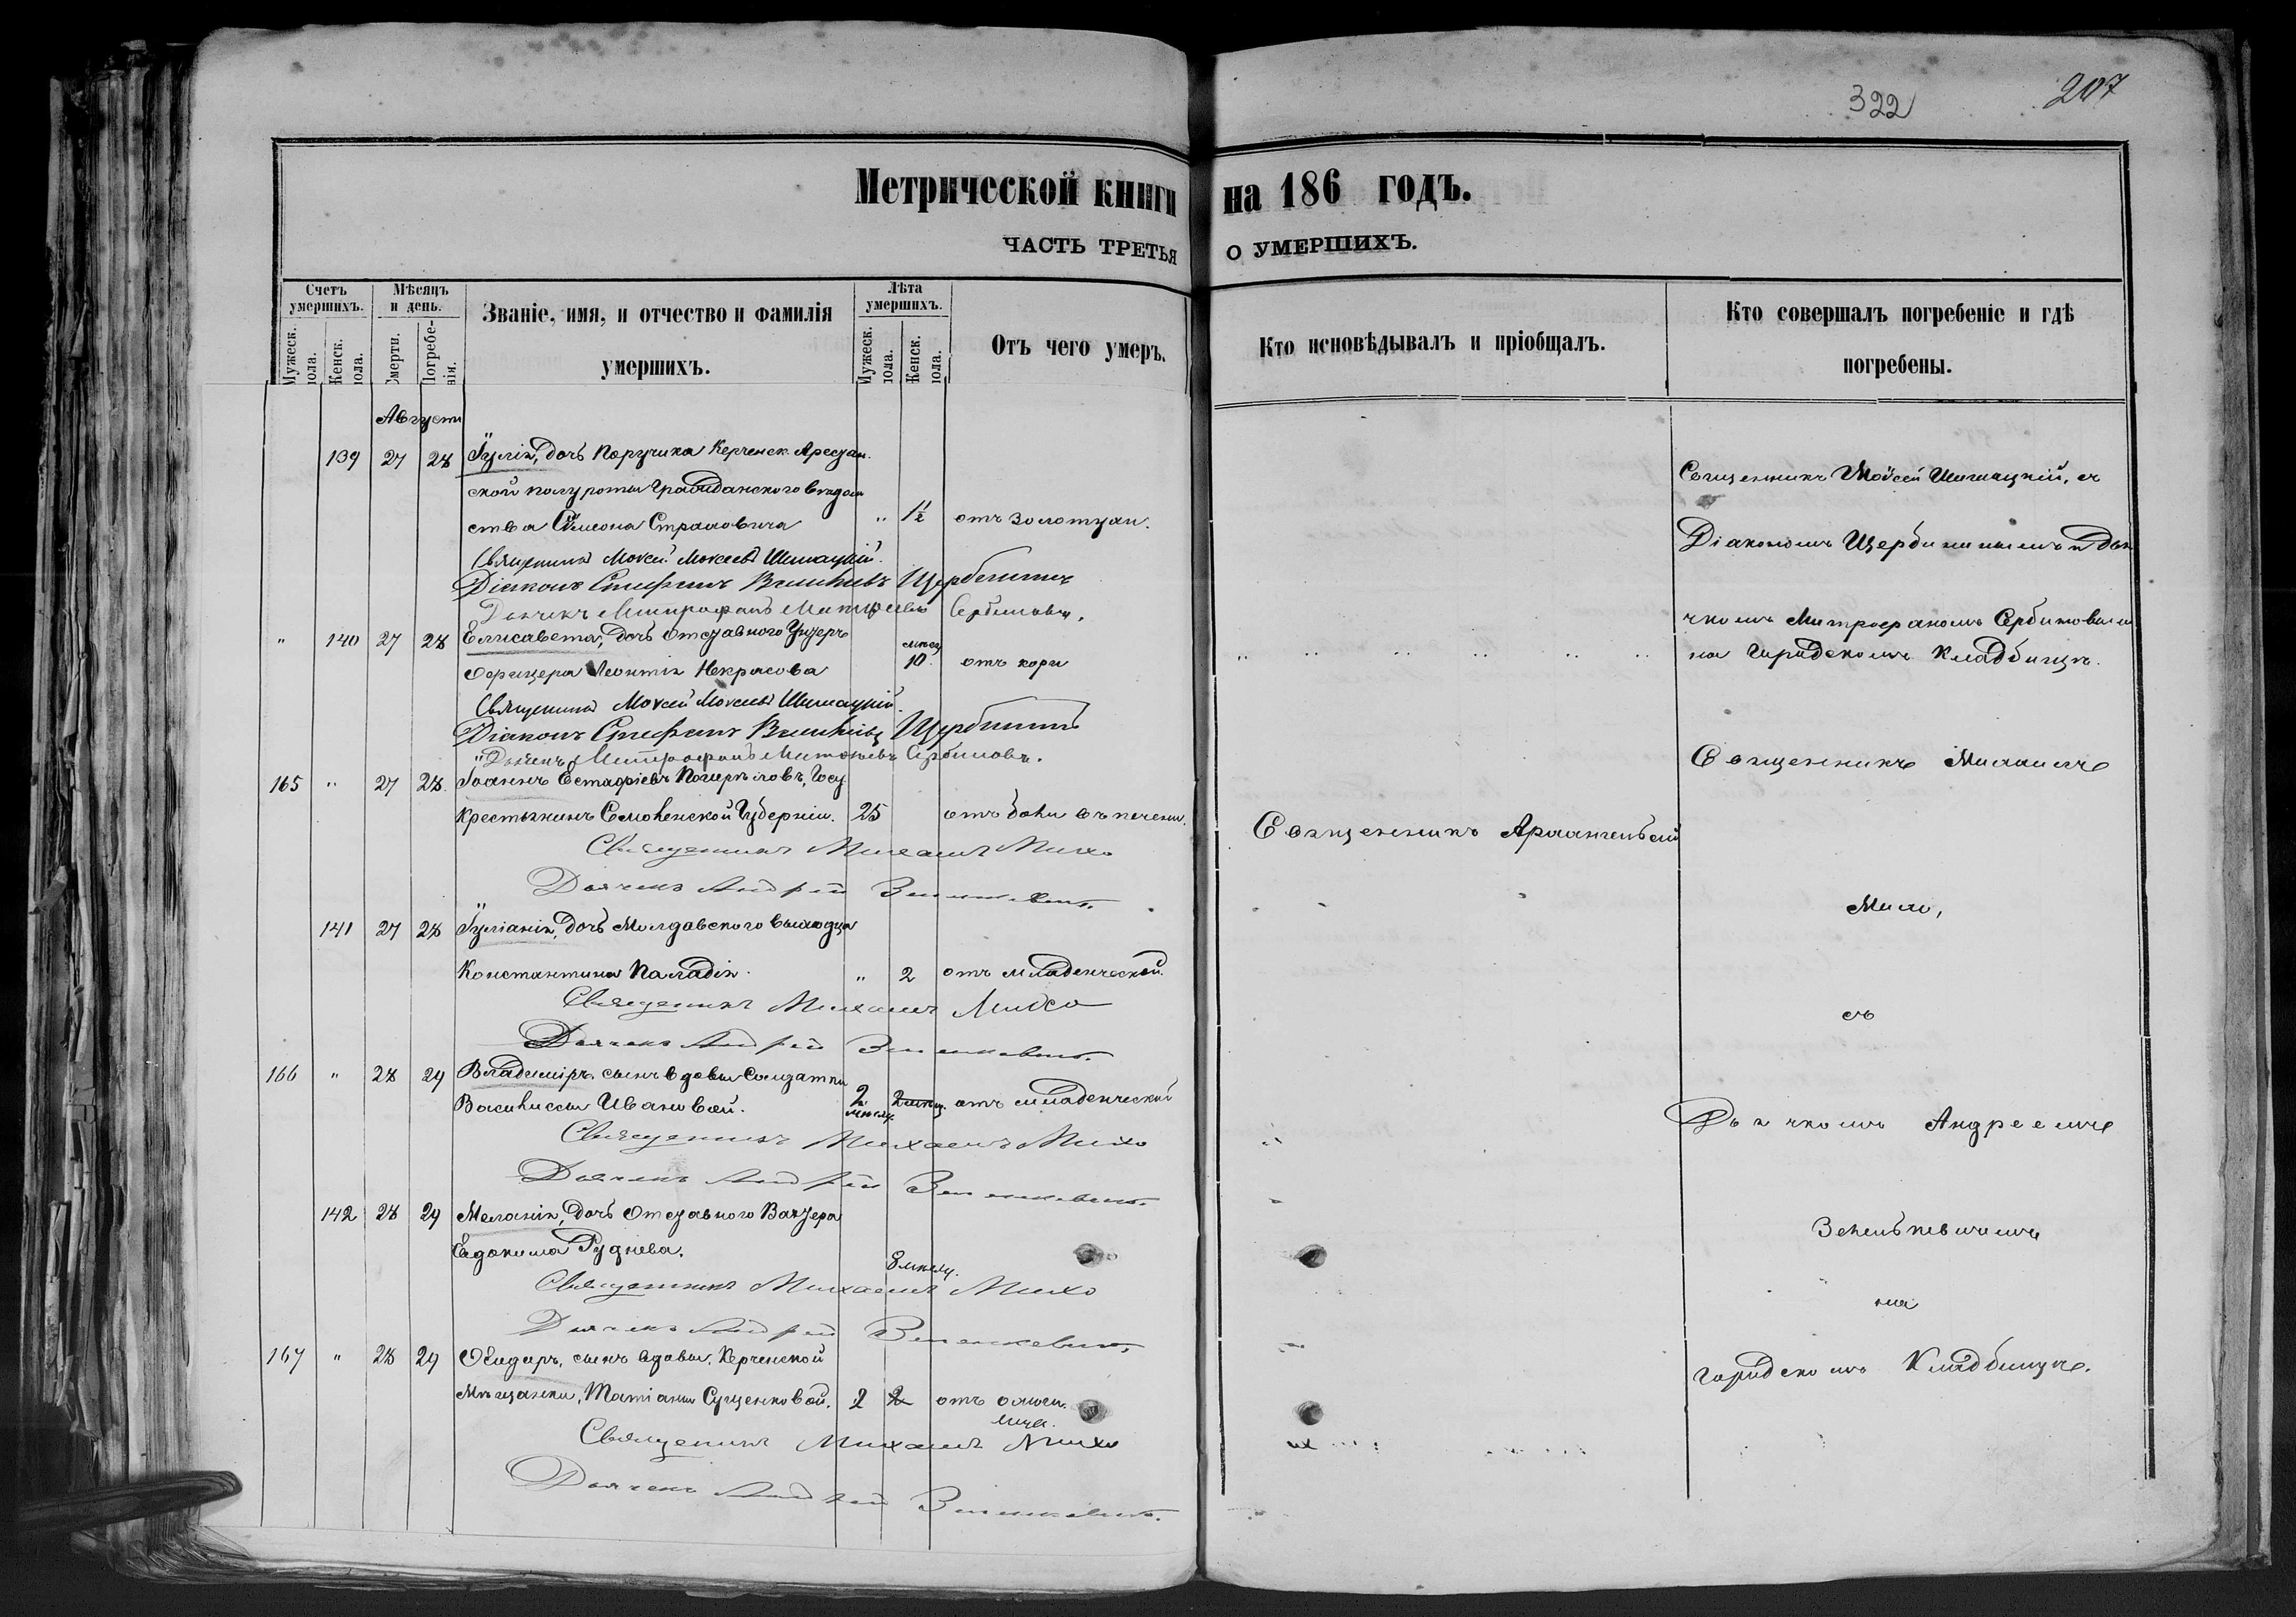 322
207
Метрической книги на 186 годъ.
ЧАСТЬ ТРЕТЬЯ О УМЕРШИХЪ.
Счетъ умершихъ.
Мужеск. пола.
Женск. пола.
Мѣсяцъ и день.
Смерти.
Погребенія.
Званіе, имя, и отчество и фамилія умершихъ.
Лѣта умершихъ.
Мужеск. пола.
Женск. пола.
Отъ чего умеръ.
Кто исповѣдывалъ и пріобщалъ.
Кто совершалъ погребеніе и гдѣ погребены.
Августъ
139 27 28 Іулія, дочь Поручика Керченск. Арестан-
ской полуроты Гражданского вѣдом
ства Симеона " 1½ отъ золотухи.
Священникъ Мокей Мокеевъ Шимацкій.
Діаконъ Стефанъ Щербининъ
Дьячекъ Митрофанъ Сербиновъ.
" 140 27 28 Елисавета, дочь Отставного Унтеръ
Офицера Леонтія Некрасова мѣсяц 10. отъ кори
Священникъ Мокей Мокеевъ Шимацкій.
Діаконъ Стефанъ Щербининъ
Дьячекъ Митрофанъ Сербиновъ.
165 " 27 28 Іоаннъ Естафіевъ Госу
Крестьянинъ Смоленской Губерніи. 25 отъ боли въ печени.
Священникъ Михаилъ Михо
Дьячекъ Андрей Зеленкевичъ.
141 27 28 Іуліанія, дочь Молдавского выходца
Константина Паладія. " 2 отъ младенческой.
Священникъ Михаилъ Михо
Дьячекъ Андрей Зеленкевичъ.
166 " 28 29 Владиміръ, сынъ вдовы Солдатки
Василиссы Ивановой. 2 мѣсяц. 2 мѣсяц. отъ младенческой
Священникъ Михаилъ Михо
Дьячекъ Андрей Зеленкевичъ.
142 28 29 Меланія, дочь Отставного Вахтера
Евдокима Руднева. 8 мѣсяц.
Священникъ Михаилъ Михо
Дьячекъ Андрей Зеленкевичъ.
167 " 28 29 Ѳеодоръ, сынъ вдовы, Керченской
Мѣщанки, Татіаны Сущенковой. 2 2 отъ
Священникъ Михаилъ Михо
Дьячекъ Андрей Зеленкевичъ.
Священникъ Архангельскій
Священникъ Шимацкій, съ
Діакономъ Щербининымъ и Дья
чкомъ Митрофаномъ Сербиновымъ
на Городскомъ Кладбищѣ.
Священникъ Михаилъ
Михо,
съ
Дьячкомъ Андреемъ
Зеленькевичемъ
на
городскомъ Кладбищѣ.